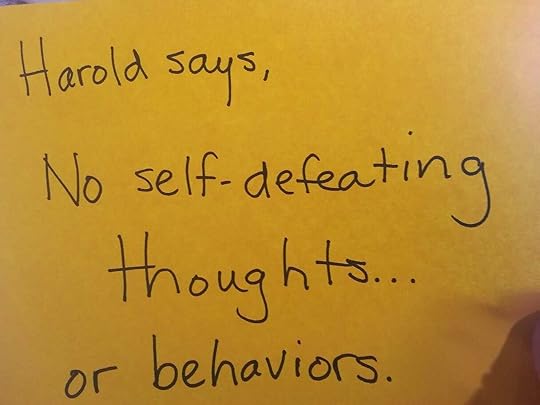 Harold says,
No self-defeating
thoughts...
or behaviors.